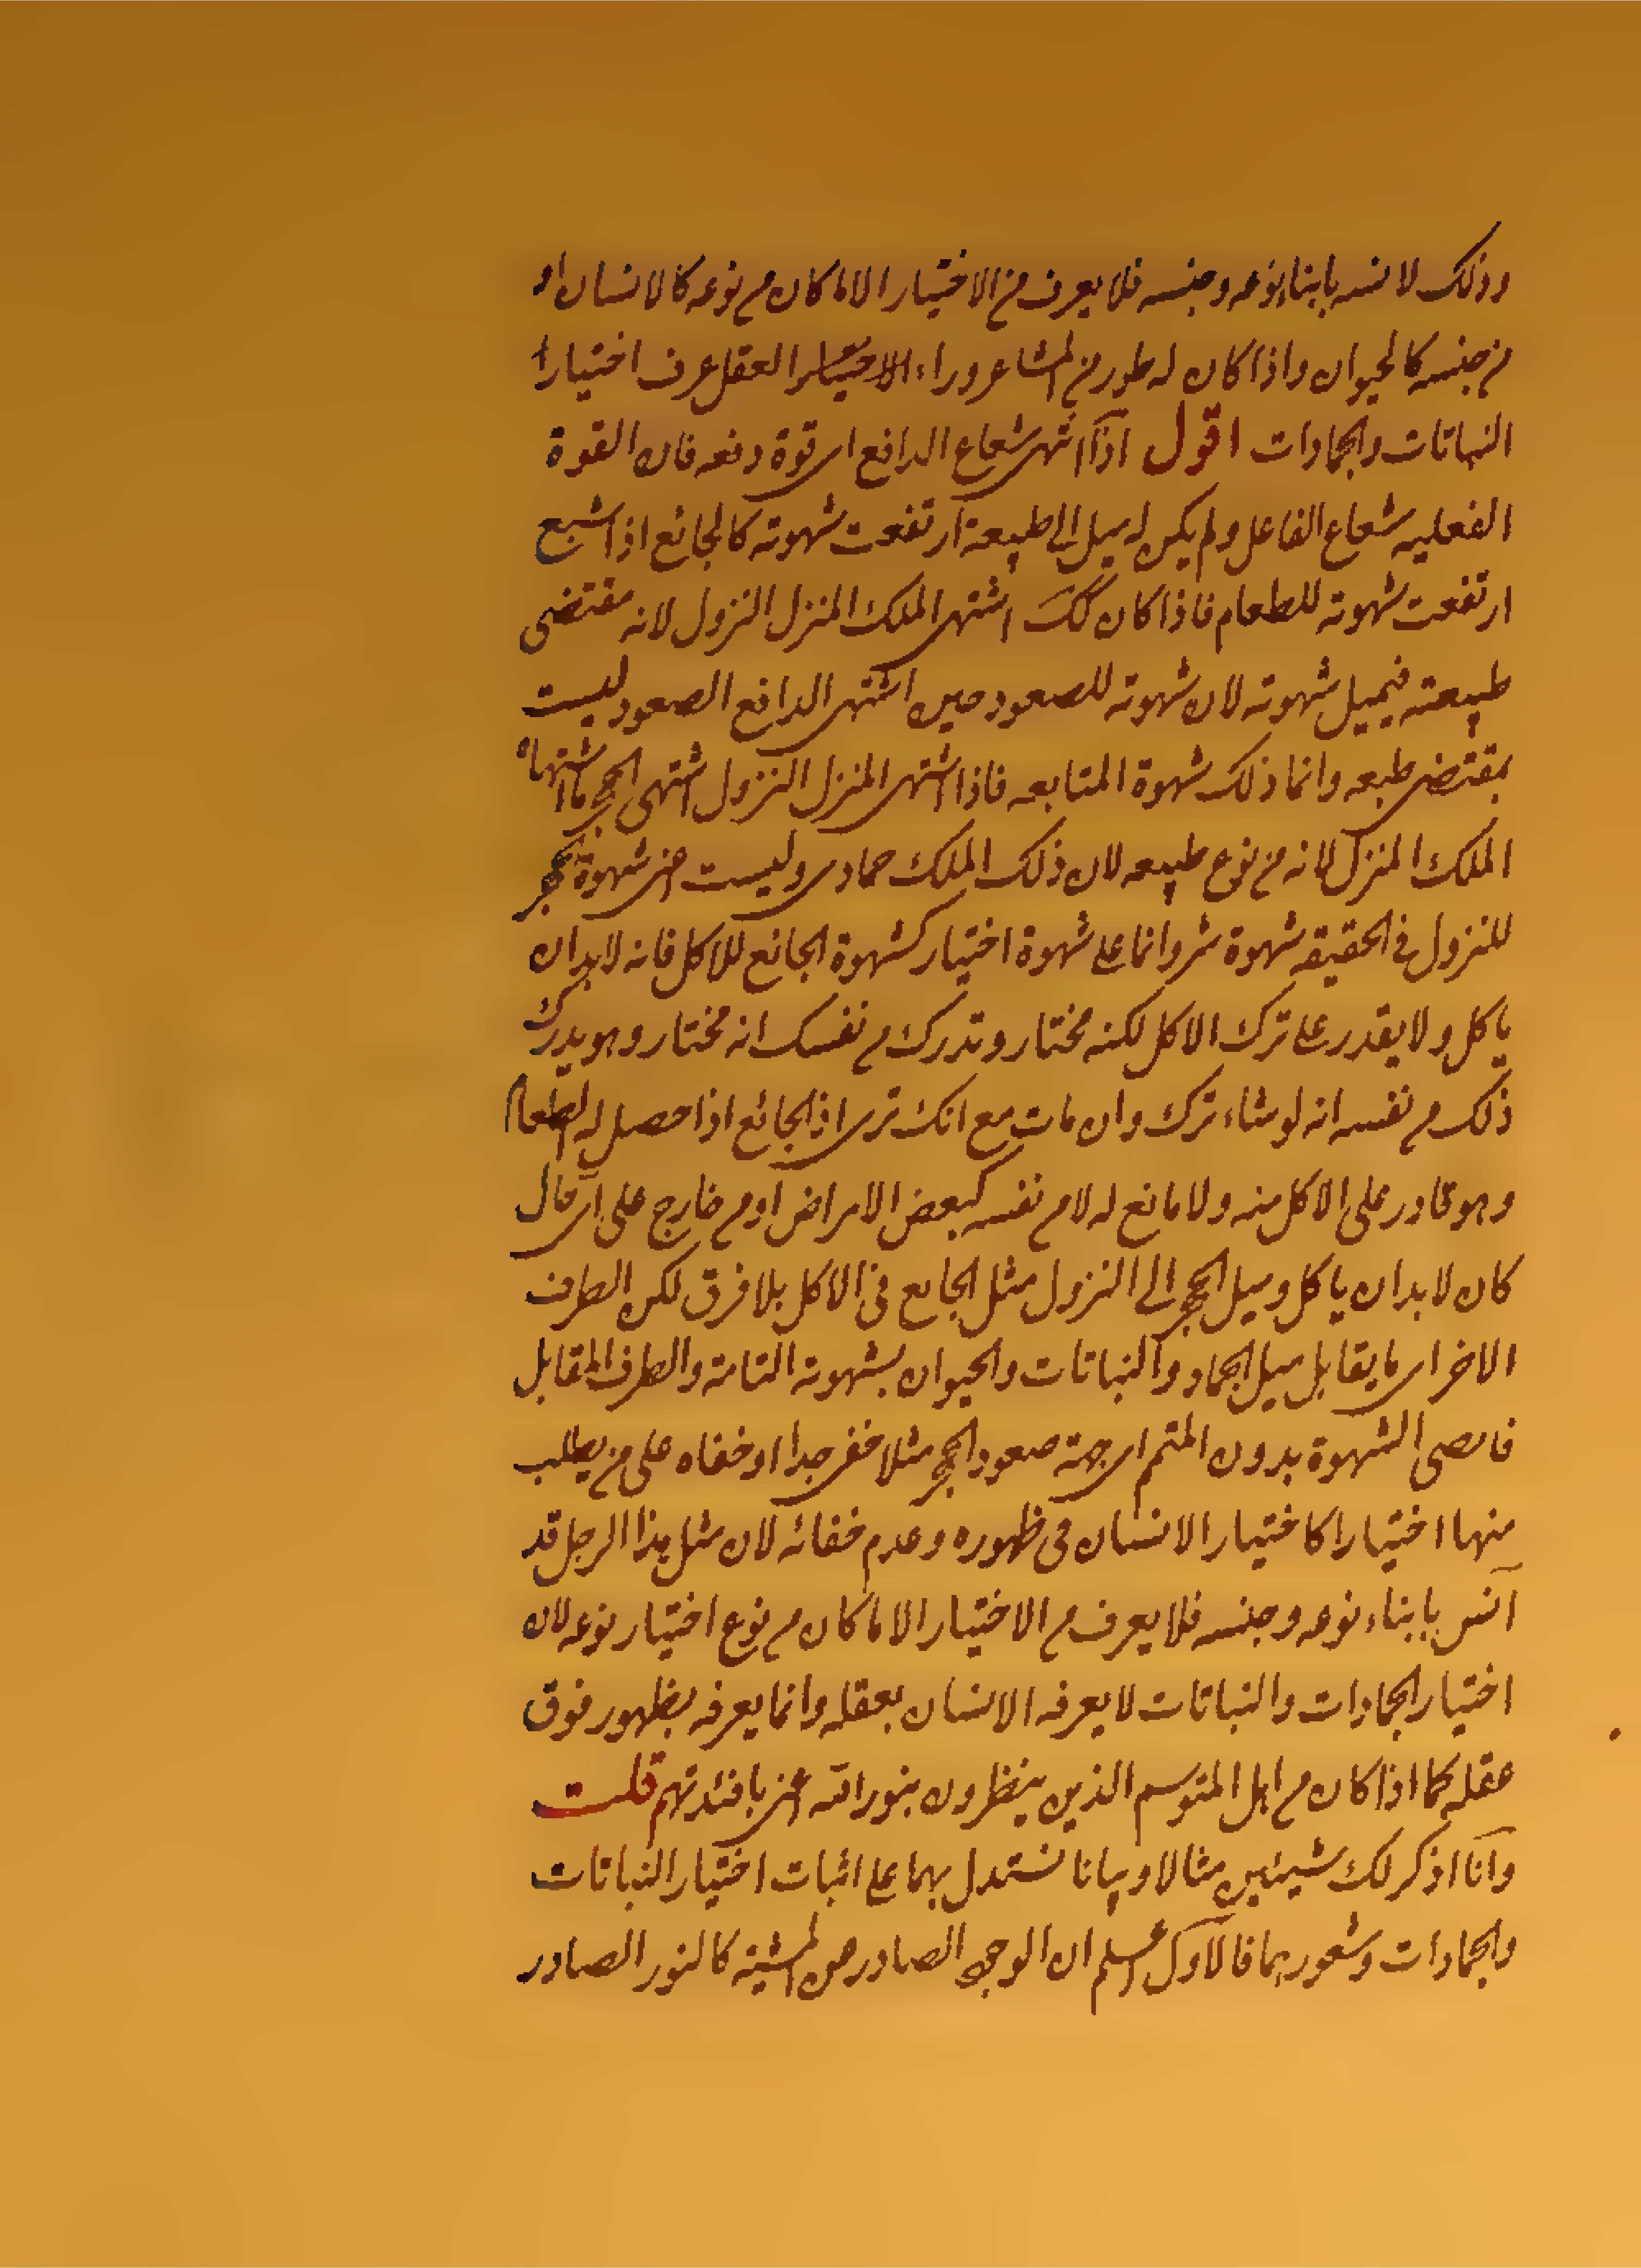 وذلك لانسه بابناء نوعه وجنسه فلا يعرف من الاختيار الا ما كان من نوعه كالانسان او
من جنسه كالحيوان واذا كان له طور من المشاعر وراء العقل عرف اختيار
النباتات والجمادات اقول اذا انتهى شعاع الدافع اى قوة دفعه فان القوة
الفعليه شعاع الفاعل ولم يكن له ميل الى طبيعة ارتفعت شهوته كالجائع اذا شبع
ارتفعت شهوته للطعام فاذا كان كك اشتهى الملك المنزل النزول لانه مقتضى
طبيعته فيميل شهوته لان شهوته للصعود حين اشتهى الدافع الصعود ليست
بمقتضى طبعه وانما ذلك شهوة المتابعه فاذا اشتهى المنزل النزول اشتهى الحجر ما اشتهاه
الملك المنزل لانه من نوع طبيعه لان ذلك الملك جمادى وليست هى شهوة حجر
للنزول فى الحقيقه شهوة وانما هى شهوة اختيار كشهوة الجائع للاكل فانه لابد ان
ياكل ولا يقدر على ترك الاكل لكنه مختار وتدرك من نفسك انه مختار وهو يدرك
ذلك من نفسه انه لو شاء ترك وان مات مع انك ترى اذ الجائع اذا حصل له الطعام
وهو قادر على الاكل منه ولا مانع له لا من نفسه كبعض الامراض او من خارج على اى حال
كان لابد ان ياكل وميل الحجر الى النزول مثل الجايع فى الاكل بلا فرق لكن الطرف
الاخر اى ما يقابل ميل الجماد والنباتات والحيوان بشهوته التامة والطرف المقابل
الشهوة بدون المتمم اى جهة صعود الحجر مثلا خفى جدا او خفاه على من يطلب
منها اختيارا كاختيار الانسان فى ظهوره وعدم خفائه لان مثل هذا الرجل قد
آنس بابناء نوعه وجنسه فلا يعرف من الاختيار الا ما كان من نوع اختيار نوعه لان
اختيار الجمادات والنباتات لا يعرفه الانسان بعقله وانما يعرفه بظهور فوق
عقله كما اذا كان من اهل المتوسم الذين ينظرون بنور الله اعنى بافئدتهم قلت
وانا اذكر لك شيئين مثالا وبيانا نستدل بهما على اثبات اختيار النباتات
والجمادات وشعورهما فالاول اعلم ان الوجود الصادر عن المشية كالنور الصادر